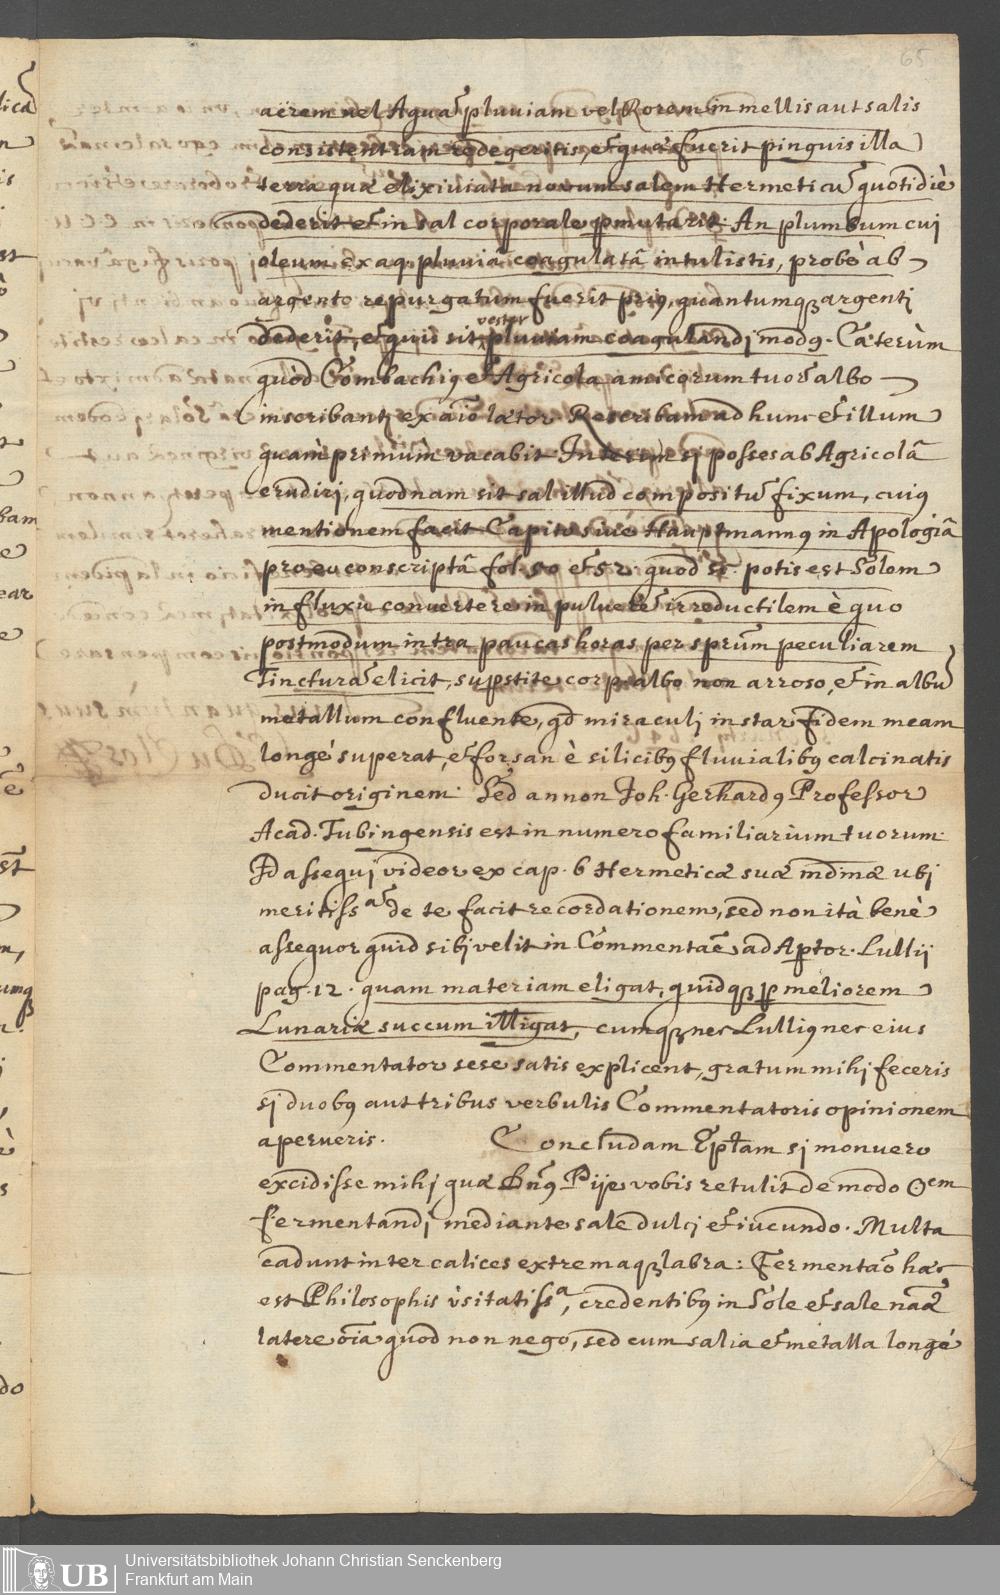 65
aërem vel Aquã pluviam vel Rorem in mellis aut salis
consistentiam redegeritis, et quæ fuerit pinguis illa
terra quæ elixiviata novum salem Hermeticũ quotidiè
dederit et in sal corporale pmutarit. An plumbum cui
oleum ex aq pluviâ coagulatâ intulistis, probè ab
argento repurgatum fuerit priꝰ, quantumqꝫ argenti
dederit, et quis sit vester pluviam coagulandj modꝰ. Cæterùm
quòd Combachiꝰ et Agricola amicorum tuorũ albo
inscribantʳ ex aĩo lætor. Rescribam ad hunc et illum
quàm primùm vacabit. Interim sj posses ab Agricolâ
erudirj, quodnam sit sal illud compositũ fixum, cuiꝰ
mentionem facit Capito sive Hauptmannꝰ in Apologiâ
pro eo conscriptâ fol. 50 et 52. quod sc. potis est Solem
in fluxu convertere in pulverẽ irreductilem è quo
postmodum intra paucas horas per sprũm peculiarem
Tincturã elicit, supstite corp. albo non arroso, et in albũ
metallum confluente, qd miraculj instar fidem meam
longè superat, et forsan è silicibꝰ fluvialibꝰ calcinatis
ducit originem. Sed annon Joh. Gerhardꝰ Professor
Acad. Tubingensis est in numero familiarium tuorum.
Id assequj videor ex cap. 6 Hermeticæ suæ mdinæ ubj
meritissᵃᵐ de te facit recordationem, sed non ità benè
assequor quid sibj velit in Commentaẽ ad Aptor. Lullij
pag. 12. quam materiam eligat, quidqꝫ p meliorem
Lunariæ succum illigat, cumqꝫ nec Lulliꝰ nec eius
Commentator sese satis explicent, gratum mihj feceris
sj duobꝰ aut tribus verbulis Commentatoris opinionem
aperueris. Concludam Eplam sj monuero
excidisse mihj quæ Dnꝰ Pije vobis retulit de modo ☉em
fermentandj mediante sale dulcj et iucundo. Multa
cadunt inter calices extremaqꝫ labra: Fermentaõ hæc
est Philosophis usitatissᵃ, credentibꝰ in Sole et sale naæ
latere oĩa quod non nego, sed cum salia et metalla longè
Universitätsbibliothek Johann Christian Senckenberg
Frankfurt am Main
UB